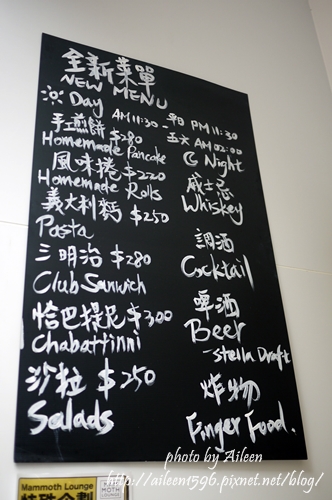 全新菜單
NEW MENU
Day AM11:30 - 平日 PM 11:30
五六 AM 02:00
手工煎餅 $280
Homemade Pancake
風味捲 $220
Homemade Rolls
義大利麵 $250
Pasta
三明治 $280
Club Sanwich
恰巴提尼 $300
Chabattinni
沙拉 $250
Salads
Night
威士忌
Whiskey
調酒
Cocktail
啤酒
Beer
-stella Draft
炸物
Finger Food.
photo by Aileen
http://aileen1596.pixnet.net/blog/
Mammoth Lounge
特殊企劃
MOTH